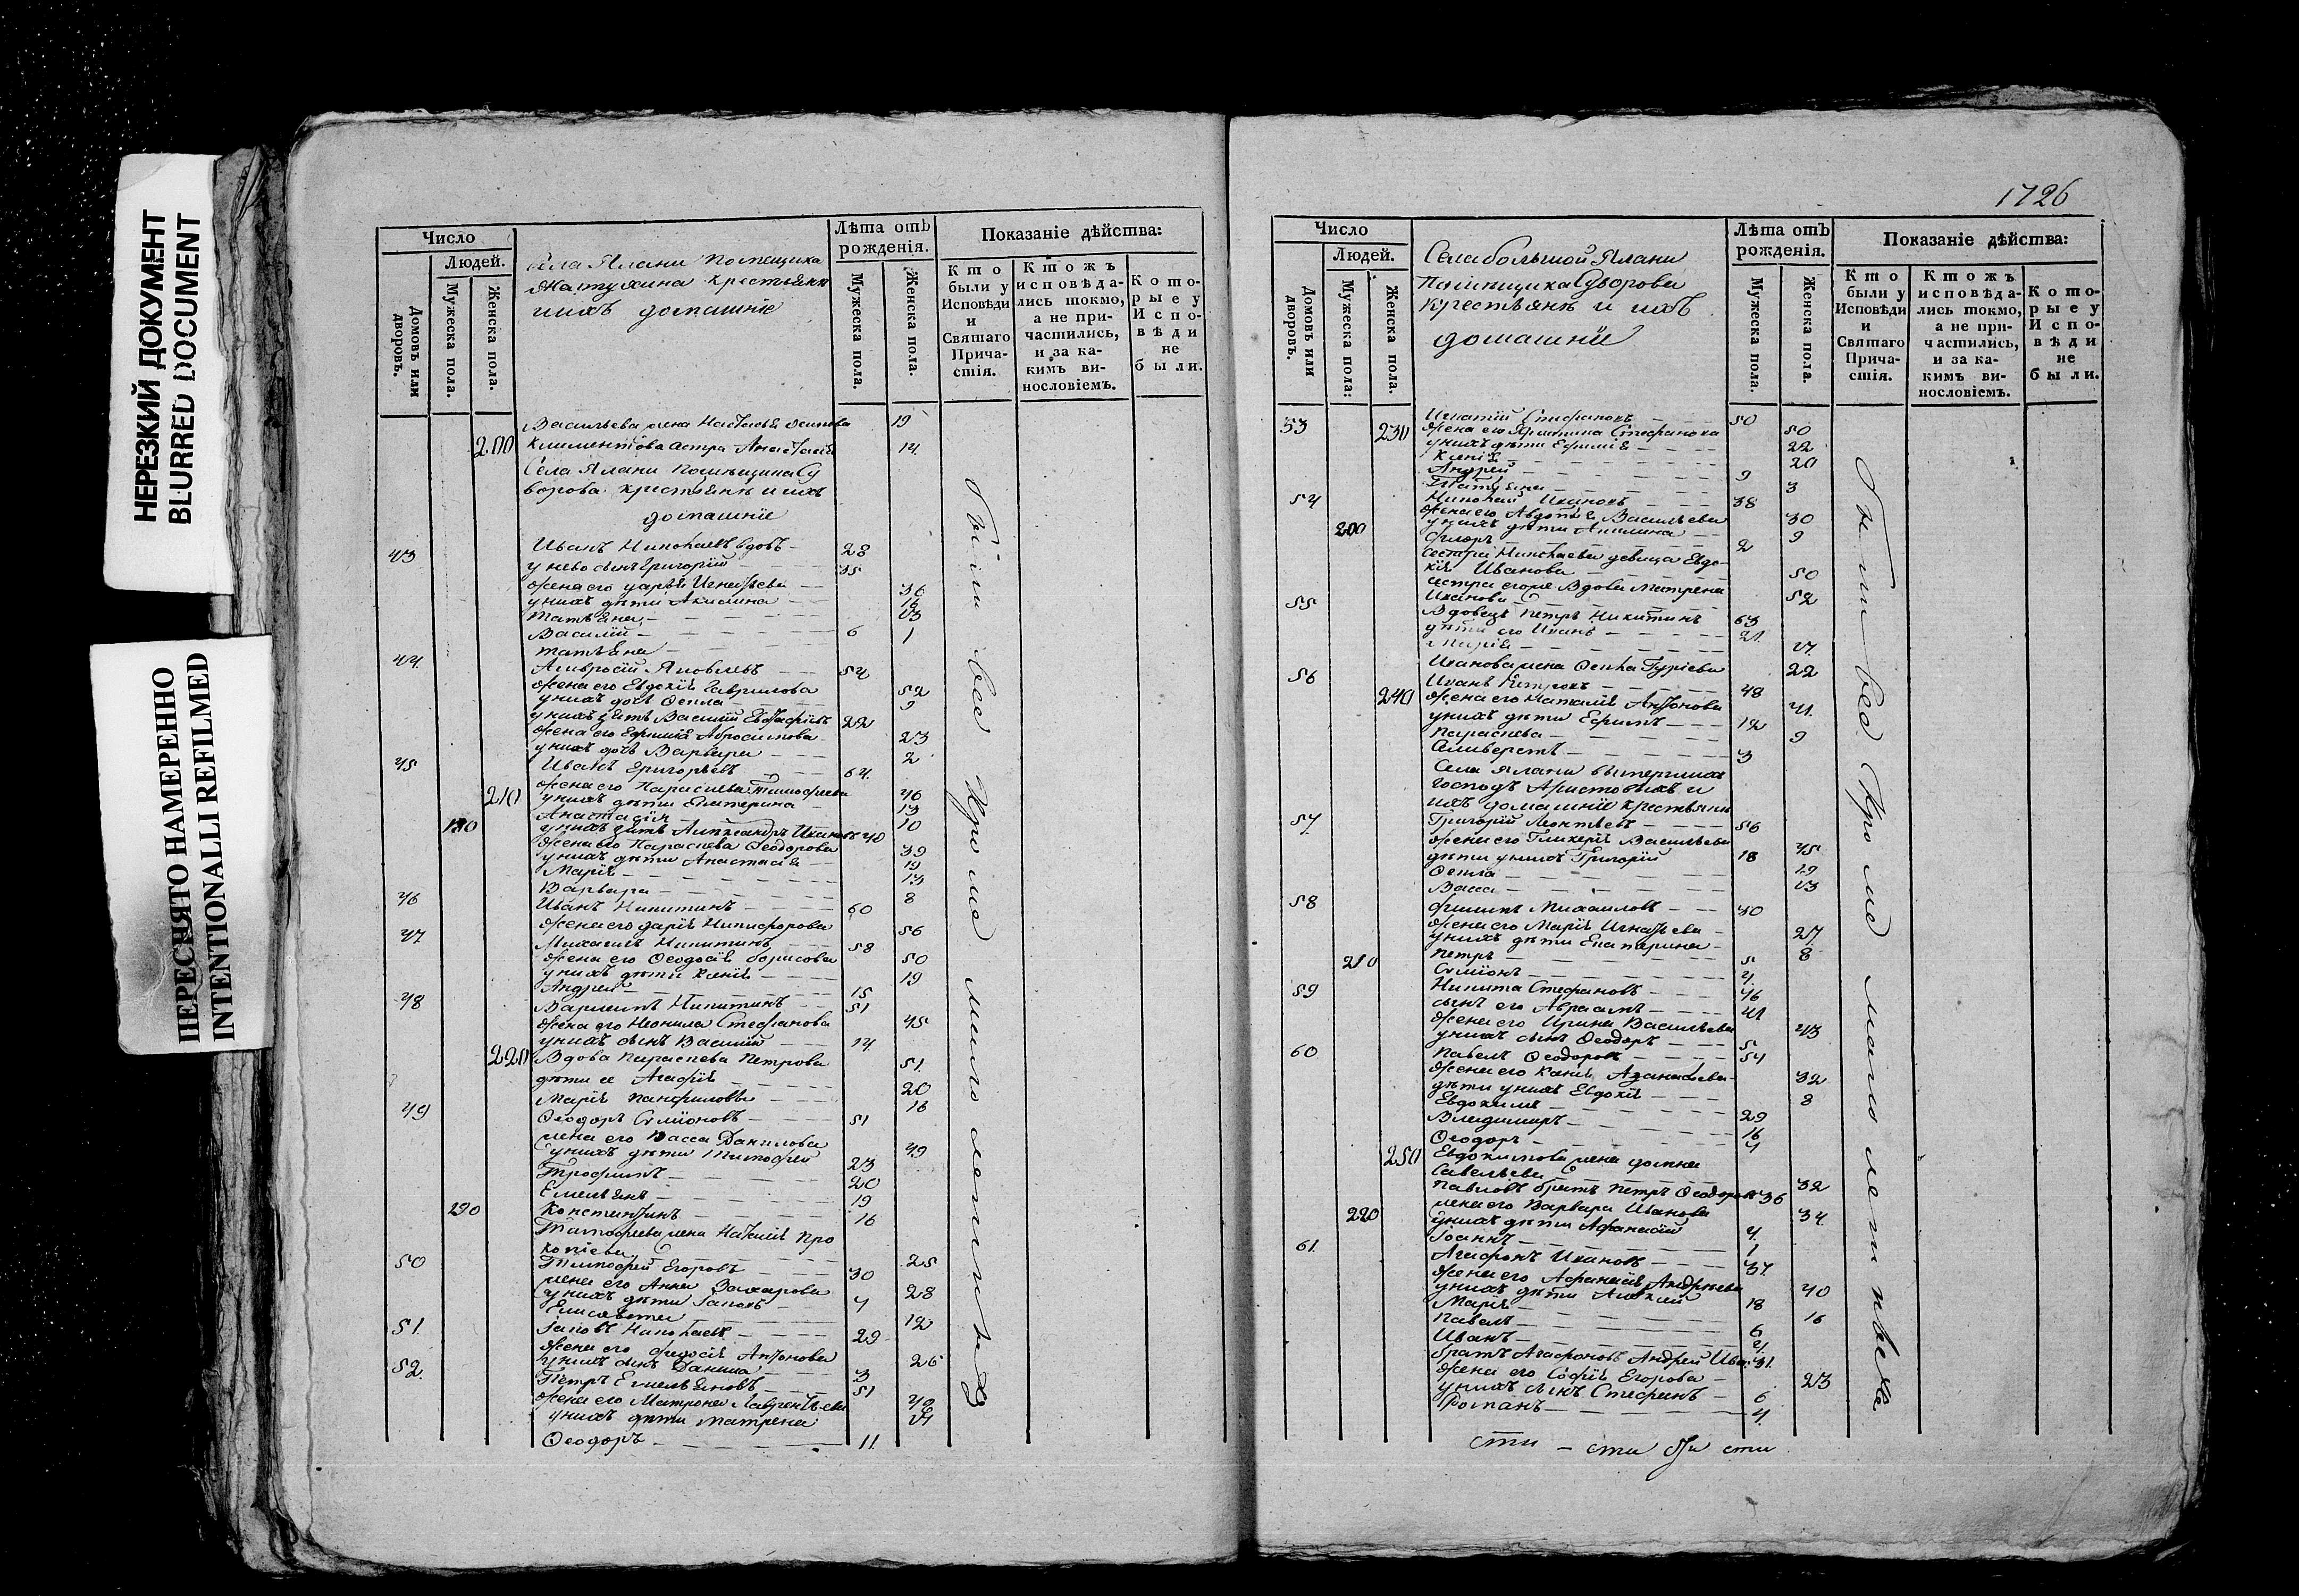 НЕРЕЗКИЙ ДОКУМЕНТ
BLURRED DOCUMENT
ПЕРЕСНЯТО НАМЕРЕННО
INTENTIONALLI REFILMED
Число
Людей.
Домовъ или дворовъ.
Мужеска пола.
Женска пола.
Села Ялани помещика
крестьяне
ихъ домашніе
Лѣта отъ рожденія.
Мужеска пола.
Женска пола.
Показаніе дѣйства:
Кто были у Исповѣди и Святаго Прича-стія.
Ктожъ исповѣда-лись токмо, а не при-частились, и за ка-кимъ ви-нословіемъ.
Кото-рые у Испо-вѣди не были.
Васильева жена Настасья Осипова 19
200 Климентова сестра Анастасія 14
Села Ялани помещика Су
ворова крестьяне и ихъ
домашніе
43 Иванъ Николаевъ вдовъ 28
у нево сынъ Григорій 35
жена его Дарья Игнатьева 36
у нихъ дѣти Акилина
Татьяна
Василій 6
Татьяна 1
44 Амвросій Яковлевъ 54
жена его Евдокія Гаврилова 52
у нихъ дочь Ѳекла 9
у нихъ зять Василій 22
жена его Абросимова 23
у нихъ дочь Варвара 2
45 Иванъ Григорьевъ 64
жена его Параскева Тимофеева 46
210 у нихъ дѣти Екатерина 13
Анастасія 10
180 у нихъ зять Александръ Ивановъ 40
жена его Параскева Ѳеодорова 39
у нихъ дѣти Анастасія 19
Марія 13
Варвара 8
46 Иванъ Никитинъ 60
жена его Дарія Никифорова 56
47 Михаилъ Никитинъ 58
жена его Ѳеодосія Борисова 50
у нихъ дѣти Ксенія 19
Андрей 15
48 Никитинъ 51
жена его Неонила Стефанова 45
у нихъ сынъ Василій 14
220 Вдова Параскева Петрова 51
дѣти ее Агафія 20
Марія Панфилова 16
49 Ѳеодоръ Симіоновъ 51
жена его Васса Данилова 49
у нихъ дѣти Тимофей 23
Трофимъ 20
Емельянъ 19
190 Константинъ 16
Тимофеева жена Наталія Про
копіева 25
50 Тимофей Егоровъ 30
жена его Анна Захарова 28
у нихъ дѣти Іаковъ 4
Елисавета 12
51 Іаковъ Николаевъ 29
жена его Федосія Антонова 26
у нихъ сынъ Данила 3
52 Петръ Емельяновъ 51
жена его Матрона Лаврентьева
у нихъ дѣти Матрена
Ѳеодоръ 11
были все кроме мало летнихъ
1726
Число
Людей.
Домовъ или дворовъ.
Мужеска пола:
Женска пола.
Села большой Ялани
Помещика Суворова
крестьяне и ихъ
домашніе
Лѣта отъ рожденія.
Мужеска пола.
Женска пола.
Показаніе дѣйства:
Кто были у Исповѣди и Святаго Прича-стія.
Ктожъ исповѣда-лись токмо, а не при-частились, и за ка-кимъ ви-нословіемъ.
Кото-рые у Испо-вѣди не были.
53 Игнатій Стефановъ 50
230 жена его Стефанова 50
у нихъ дѣти Ефимія 22
Ксенія 20
Андрей 9
Татьяна 3
54 Николай Ивановъ 38
жена его Авдотья Васильева 30
200 у нихъ дѣти Акилина 9
2
сестра Николаева девица Евдо
кія Иванова 50
сестра его же вдова Матрена
Иванова 52
55 Вдовецъ Петръ Никитинъ 63
дѣти его Иванъ 21
Марія
Иванова жена Ѳекла Гуріева 22
56 Иванъ Петровъ 48
240 жена его Наталія Антонова 41
у нихъ дѣти Ефимъ 12
Параскева 9
Селиверстъ 3
Села Ялани
господъ и
ихъ домашніе крестьяне
57 Григорій Леонтьевъ 56
жена его Гликерія Васильева 45
дѣти у нихъ Григорій 18
Ѳекла 19
Васса
58 Филипъ Михаиловъ 30
жена его Марія Игнатьева 27
у нихъ дѣти Екатерина 8
210 Петръ 5
Симіонъ 4
59 Никита Стефановъ 46
сынъ его Авраамъ 21
жена его Ирина Васильева 43
у нихъ сынъ Ѳеодоръ 5
60 Павелъ Ѳеодоровъ 54
жена его Ксенія Аѳанасьева 32
дѣти у нихъ Евдокія 8
Евдокимъ 29
Владимиръ 16
Ѳеодоръ 4
250 Евдокимова жена Домна
Савельева 32
Павловъ братъ Петръ Ѳеодоровъ 36
жена его Варвара Иванова 34
220 у нихъ дѣти Афанасій 4
Іоаннъ 1
61 Агафонъ Ивановъ 37
жена его Андреева 40
у нихъ дѣти Алексей 18
Марія 16
Павелъ 6
Иванъ
братъ Агафоновъ Андрей 31
жена его Софія Егорова 23
у нихъ сынъ Стефанъ 6
Романъ 4
были все кроме мало летнихъ
сти – сти сти